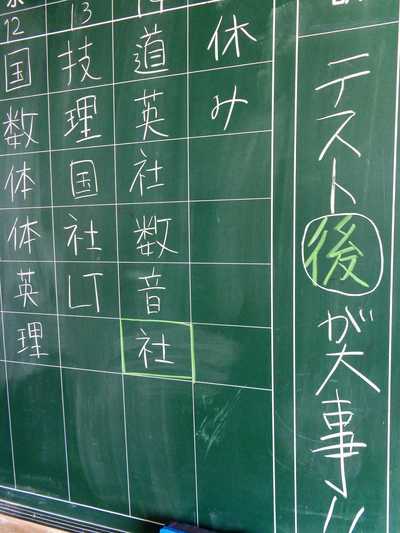 テスト後が大事!!
休み
道英社数音社
13
技理国社LT
12
国数体体英理